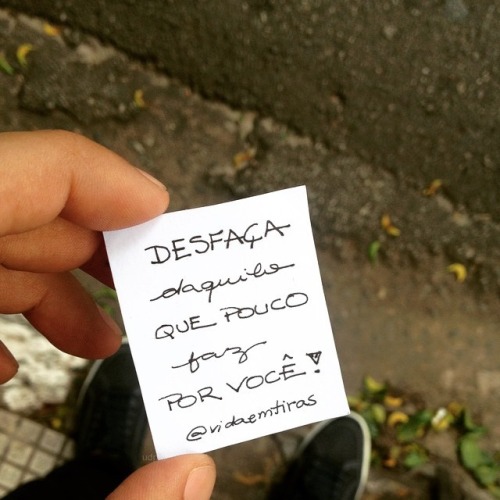 DESFAÇA
daquilo
QUE POUCO
faz
POR VOCÊ!
@vidaemtiras